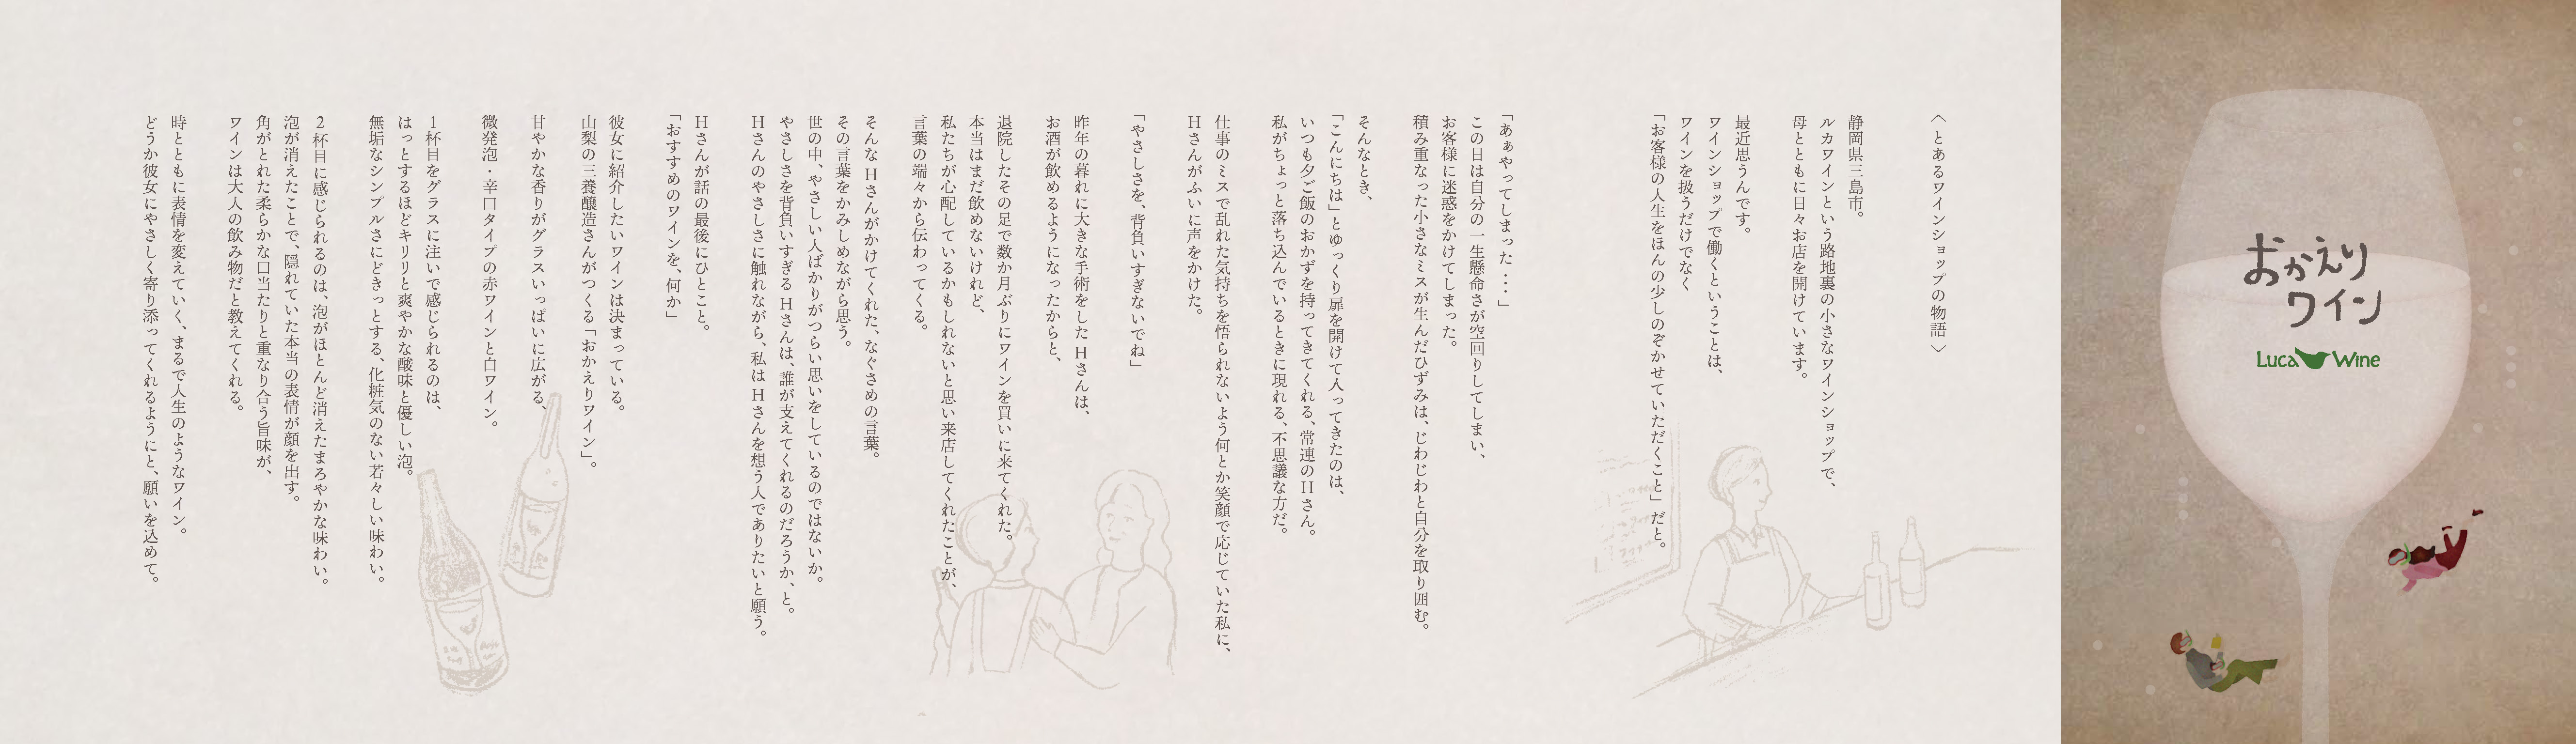 〈とあるワインショップの物語〉
静岡県三島市。
ルカワインという路地裏の小さなワインショップで、
母とともに日々お店を開けています。
最近思うんです。
ワインショップで働くということは、
ワインを扱うだけでなく
「お客様の人生をほんの少しのぞかせていただくこと」だと。
「あぁやってしまった・・・」
この日は自分の一生懸命さが空回りしてしまい、
お客様に迷惑をかけてしまった。
積み重なった小さなミスが生んだひずみは、じわじわと自分を取り囲む。
そんなとき、
「こんにちは」とゆっくり扉を開けて入ってきたのは、
いつも夕ご飯のおかずを持ってきてくれる、常連のHさん。
私がちょっと落ち込んでいるときに現れる、不思議な方だ。
仕事のミスで乱れた気持ちを悟られないよう何とか笑顔で応じていた私に、
Hさんがふいに声をかけた。
「やさしさを、背負いすぎないでね」
昨年の暮れに大きな手術をしたHさんは、
お酒が飲めるようになったからと、
退院したその足で数か月ぶりにワインを買いに来てくれた。
本当はまだ飲めないけれど、
私たちが心配しているかもしれないと思い来店してくれたことが、
言葉の端々から伝わってくる。
そんなHさんがかけてくれた、なぐさめの言葉。
その言葉をかみしめながら思う。
世の中、やさしい人ばかりがつらい思いをしているのではないか。
やさしさを背負いすぎるHさんは、誰が支えてくれるのだろうか、と。
Hさんのやさしさに触れながら、私はHさんを想う人でありたいと願う。
Hさんが話の最後にひとこと。
「おすすめのワインを、何か」
彼女に紹介したいワインは決まっている。
山梨の三養醸造さんがつくる「おかえりワイン」。
甘やかな香りがグラスいっぱいに広がる、
微発泡・辛口タイプの赤ワインと白ワイン。
1杯目をグラスに注いで感じられるのは、
はっとするほどキリリと爽やかな酸味と優しい泡。
無垢なシンプルさにどきっとする、化粧気のない若々しい味わい。
2杯目に感じられるのは、泡がほとんど消えたまろやかな味わい。
泡が消えたことで、隠れていた本当の表情が顔を出す。
角がとれた柔らかな口当たりと重なり合う旨味が、
ワインは大人の飲み物だと教えてくれる。
時とともに表情を変えていく、まるで人生のようなワイン。
どうか彼女にやさしく寄り添ってくれるようにと、願いを込めて。
おかえり
ワイン
Luca Wine